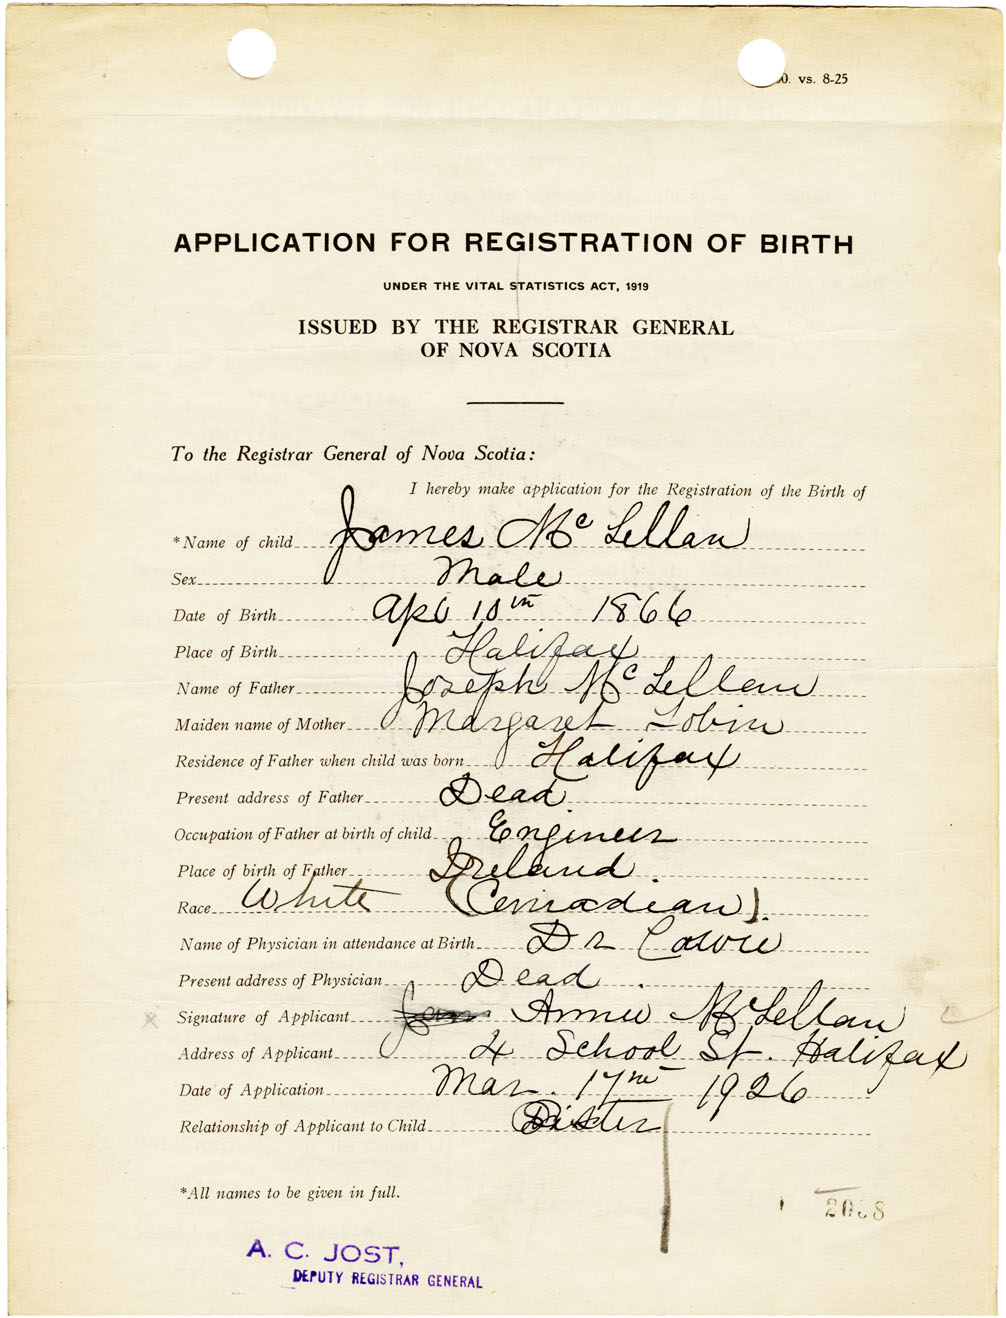 0. vs. 8-25
APPLICATION FOR REGISTRATION OF BIRTH
UNDER THE VITAL STATISTICS ACT, 1919
ISSUED BY THE REGISTRAR GENERAL
OF NOVA SCOTIA
To the Registrar General of Nova Scotia:
I hereby make application for the Registration of the Birth of
*Name of child James Mc Lellan
Sex Male
Date of Birth Apl 10th 1866
Place of Birth Halifax
Name of Father Joseph Mc Lellan
Maiden name of Mother Margaret Tobin
Residence of Father when child was born Halifax
Present address of Father Dead
Occupation of Father at birth of child Engineer
Place of birth of Father Ireland.
Race White (Canadian).
Name of Physician in attendance at Birth Dr Cowie
Present address of Physician Dead.
Signature of Applicant Annie McLellan
Address of Applicant 4 School St. Halifax
Date of Application Mar. 17th 1926
Relationship of Applicant to Child Sister
*All names to be given in full.
A. C. JOST,
DEPUTY REGISTRAR GENERAL